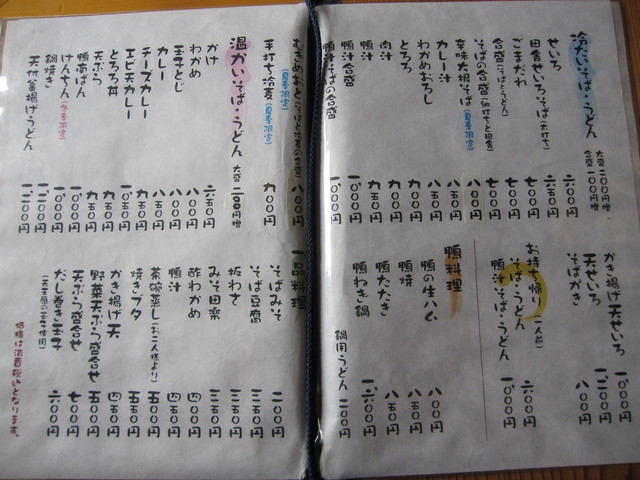 冷たいそば・うどん 大盛 二〇〇円増 合盛 一〇〇円増
せいろ 六〇〇円
田舎せいろそば(太打ち) 六五〇円
ごまだれ 七〇〇円
合盛(そばとうどん) 七〇〇円
そばの合盛(細打ちと田舎) 七〇〇円
辛味大根そば(夏季限定) 八〇〇円
カレー汁 八五〇円
わかめおろし 八五〇円
とろろ 九〇〇円
肉汁 九〇〇円
鴨汁 九五〇円
鴨汁合盛 一、〇〇〇円
鴨汁そばの合盛 一、〇〇〇円
かき揚げ天せいろ 一、〇〇〇円
天せいろ 一、二〇〇円
そばがき 八〇〇円
お持ち帰り(一人前)
そば・うどん 六〇〇円
鴨汁そば・うどん 一、〇〇〇円
鴨料理
鴨の生ハム 八〇〇円
鴨焼 八五〇円
鴨たたき 八五〇円
鴨ねぎ鍋 一、六〇〇円
鍋用うどん 二〇〇円
むぎめおと(そばと冷麦の合盛) 八〇〇円
(夏季限定)
手打ち冷麦(夏季限定) 九〇〇円
温かいそば・うどん 大盛 二〇〇円増
かけ 六五〇円
わかめ 八〇〇円
玉子とじ 八〇〇円
カレー 八五〇円
チーズカレー 九五〇円
エビ天カレー 一、〇五〇円
とろろ丼 九五〇円
天ぷら 九五〇円
鴨南ばん 一、〇〇〇円
けんちん(冬季限定) 一、〇〇〇円
鍋焼き 一、二〇〇円
天付釜揚げうどん 一、二〇〇円
一品料理
そばみそ 二〇〇円
そば豆腐 三五〇円
板わさ 三五〇円
みそ田楽 三五〇円
酢わかめ 四五〇円
鴨汁 四五〇円
茶碗蒸し(お二人様より) 五五〇円
焼きブタ 五五〇円
かき揚げ天 四五〇円
野菜天ぷら盛合せ 五〇〇円
天ぷら盛合せ 七〇〇円
だし巻き玉子 六〇〇円
価格は消費税込となります。